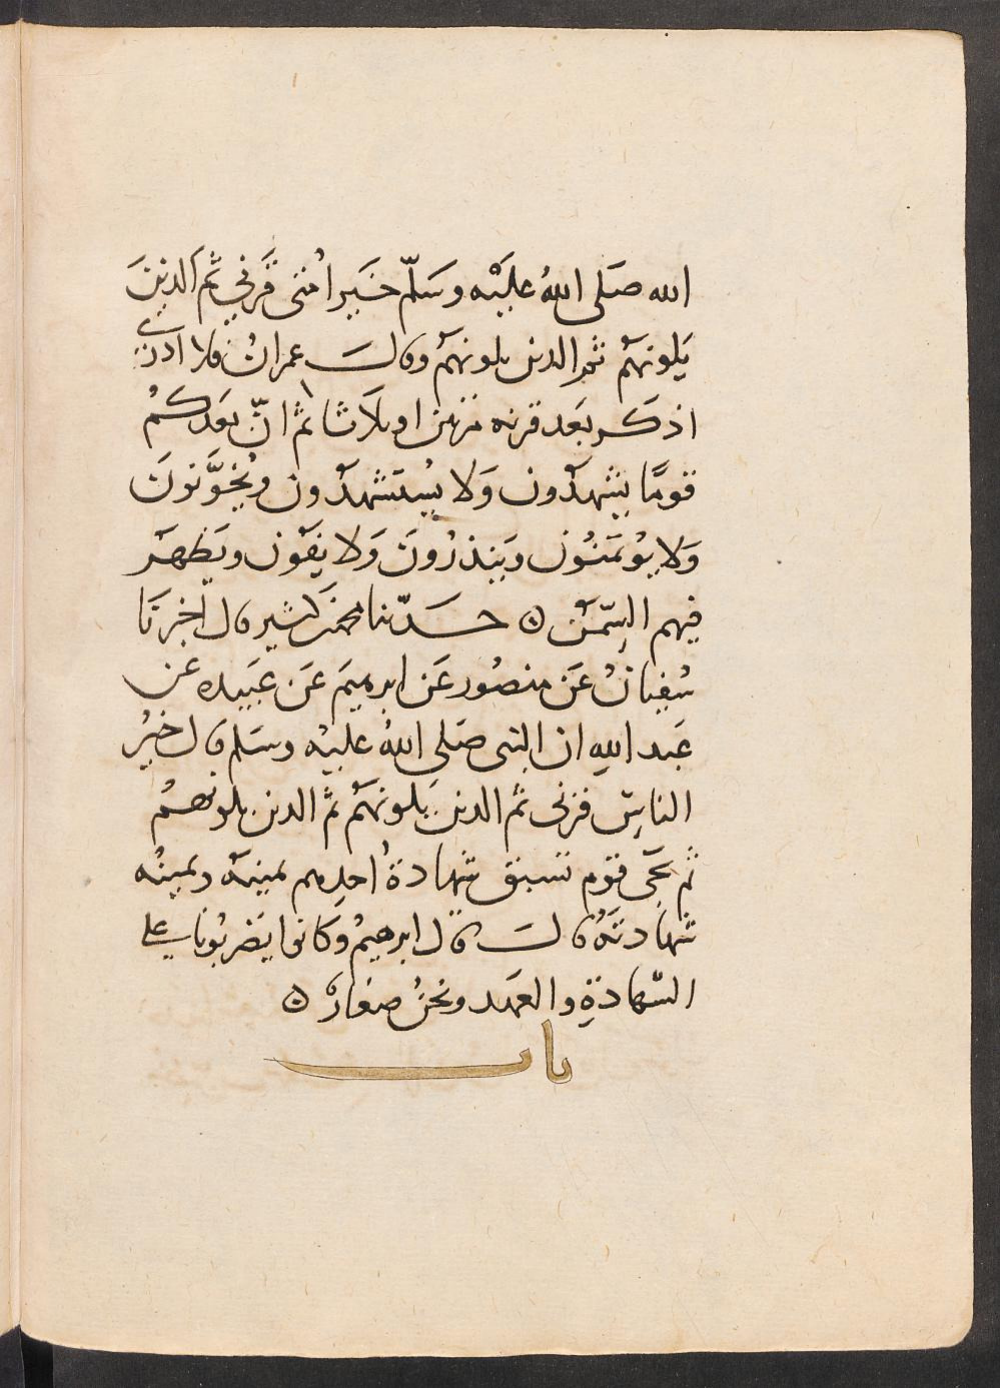 الله صَلى اللهُ علَيْه وسَلّم خَير اُمتى قَرني ثم الَذينَ
يَلونهُم ثم الذين يلونهم وقال عمران فلا ادرى
اذكَر بَعد قرنه قرنين او ثلاثا ثم انّ بعَدكمُ
قومًا يشهدُون وَلا يُستشهدُون ويخوَّنونَ
وَلا يوتمَنُون وَينذرُونَ وَلا يفَون ويَظهَر
فيهم السِّمَن ٥ حَدّثنا محمد بن كثير قال اخبرنَا
سُفيانُ عَن منصُور عَن ابرهيمَ عَن عَبَيده عَن
عَبد اللهِ ان النبى صَلى اللهُ عليْه وسَلم قال خيرُ
الناسِ قرنى ثم الذين يَلونهُم ثم الذين يلونهمُ
ثم يجَى قوم تسبق شهادةُ اُحدِهم يمينَه ويمينُه
شهادتَهُ قالَ قال ابرهيمُ وكَانوا يَضربُونا على
الشّهادَةِ والعهَد ونحنُ صغارٌ ٥
باب